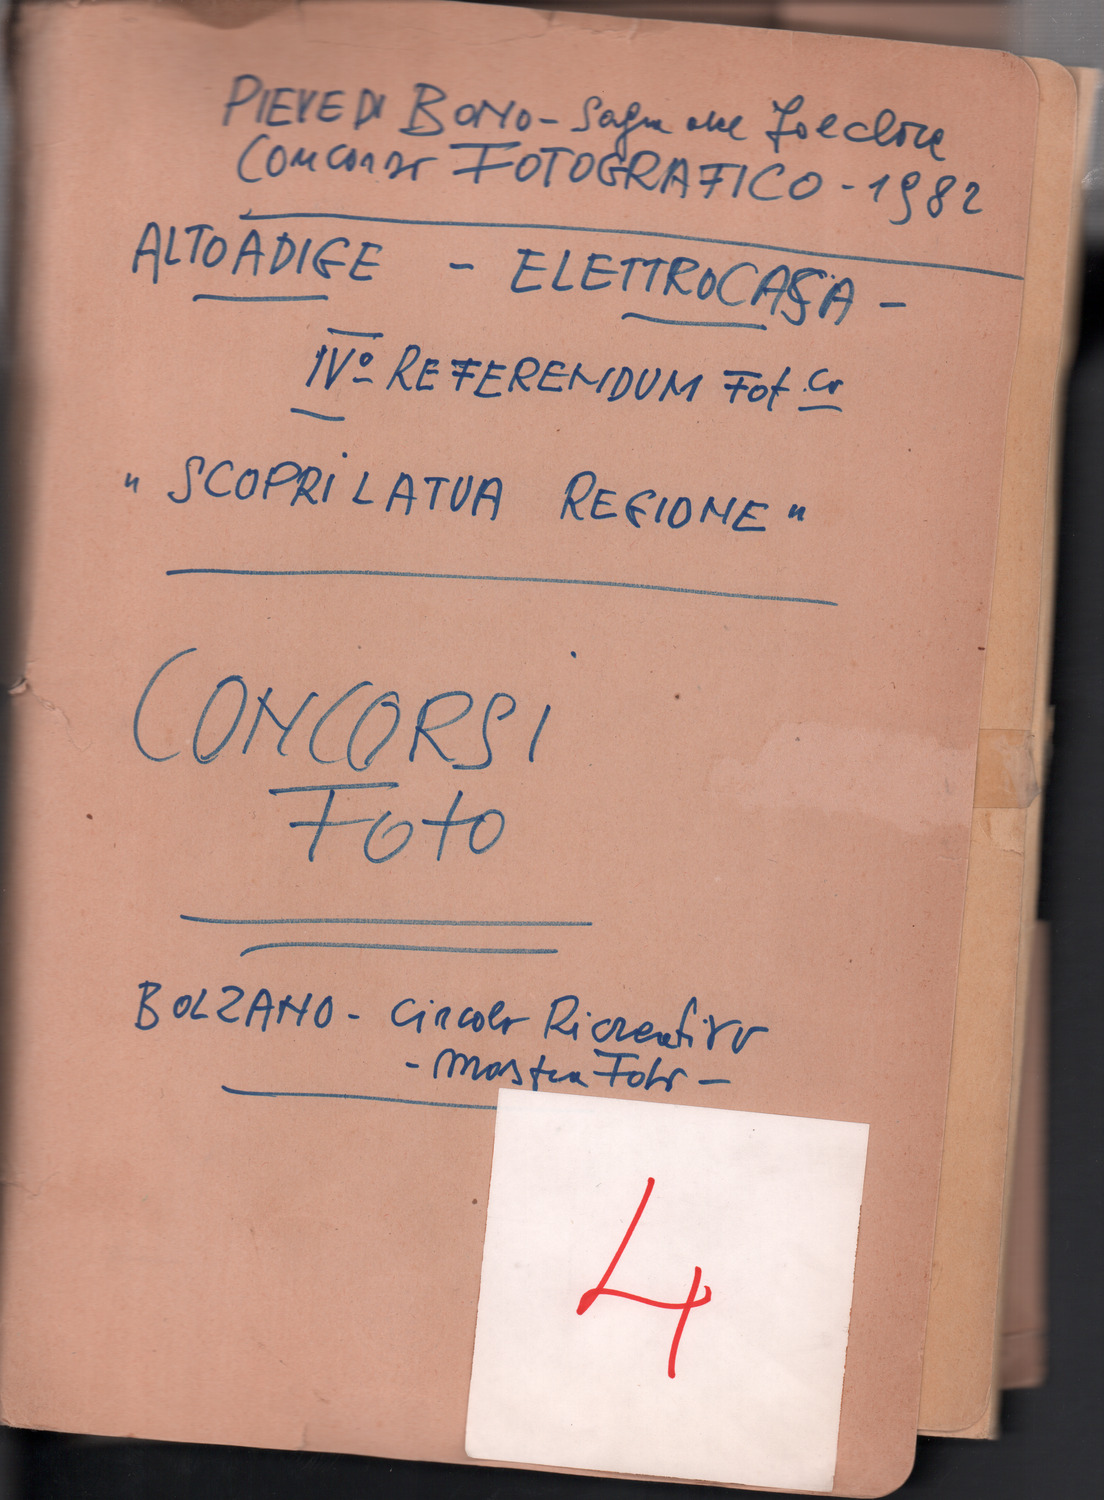 PIEVE DI BONO - Sagra del Folclore
Concorso FOTOGRAFICO - 1982
ALTO ADIGE - ELETTROCASA -
IVº REFERENDUM Fot.co
" SCOPRI LA TUA REGIONE "
CONCORSI
Foto
BOLZANO - Circolo Ricreativo
- Mostra Foto -
4